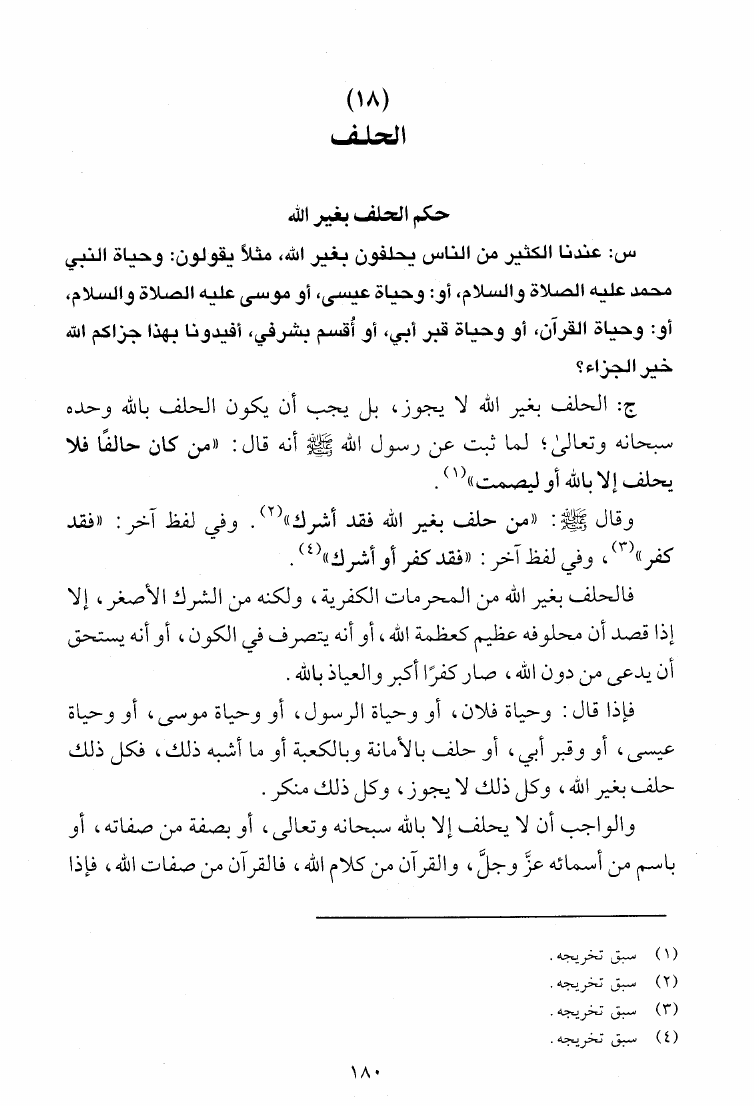 (١٨)
الحلف
حكم الحلف بغير الله
س: عندنا الكثير من الناس يحلفون بغير الله، مثلاً يقولون: وحياة النبي
محمد عليه الصلاة والسلام، أو: وحياة عيسى، أو موسى عليه الصلاة والسلام،
أو: وحياة القرآن، أو وحياة قبر أبي، أو أُقسم بشرفي، أفيدونا بهذا جزاكم الله
خير الجزاء؟
ج: الحلف بغير الله لا يجوز، بل يجب أن يكون الحلف بالله وحده
سبحانه وتعالىٰ؛ لما ثبت عن رسول الله ﷺ أنه قال: «من كان حالفًا فلا
يحلف إلا بالله أو ليصمت»(١).
وقال ﷺ: «من حلف بغير الله فقد أشرك»(٢). وفي لفظ آخر: «فقد
كفر»(٣)، وفي لفظ آخر: «فقد كفر أو أشرك»(٤).
فالحلف بغير الله من المحرمات الكفرية، ولكنه من الشرك الأصغر، إلا
إذا قصد أن محلوفه عظيم كعظمة الله، أو أنه يتصرف في الكون، أو أنه يستحق
أن يدعى من دون الله، صار كفرًا أكبر والعياذ بالله.
فإذا قال: وحياة فلان، أو وحياة الرسول، أو وحياة موسى، أو وحياة
عيسى، أو وقبر أبي، أو حلف بالأمانة وبالكعبة أو ما أشبه ذلك، فكل ذلك
حلف بغير الله، وكل ذلك لا يجوز، وكل ذلك منكر.
والواجب أن لا يحلف إلا بالله سبحانه وتعالى، أو بصفة من صفاته، أو
باسم من أسمائه عزَّ وجلَّ، والقرآن من كلام الله، فالقرآن من صفات الله، فإذا
(١) سبق تخريجه.
(٢) سبق تخريجه.
(٣) سبق تخريجه.
(٤) سبق تخريجه.
١٨٠